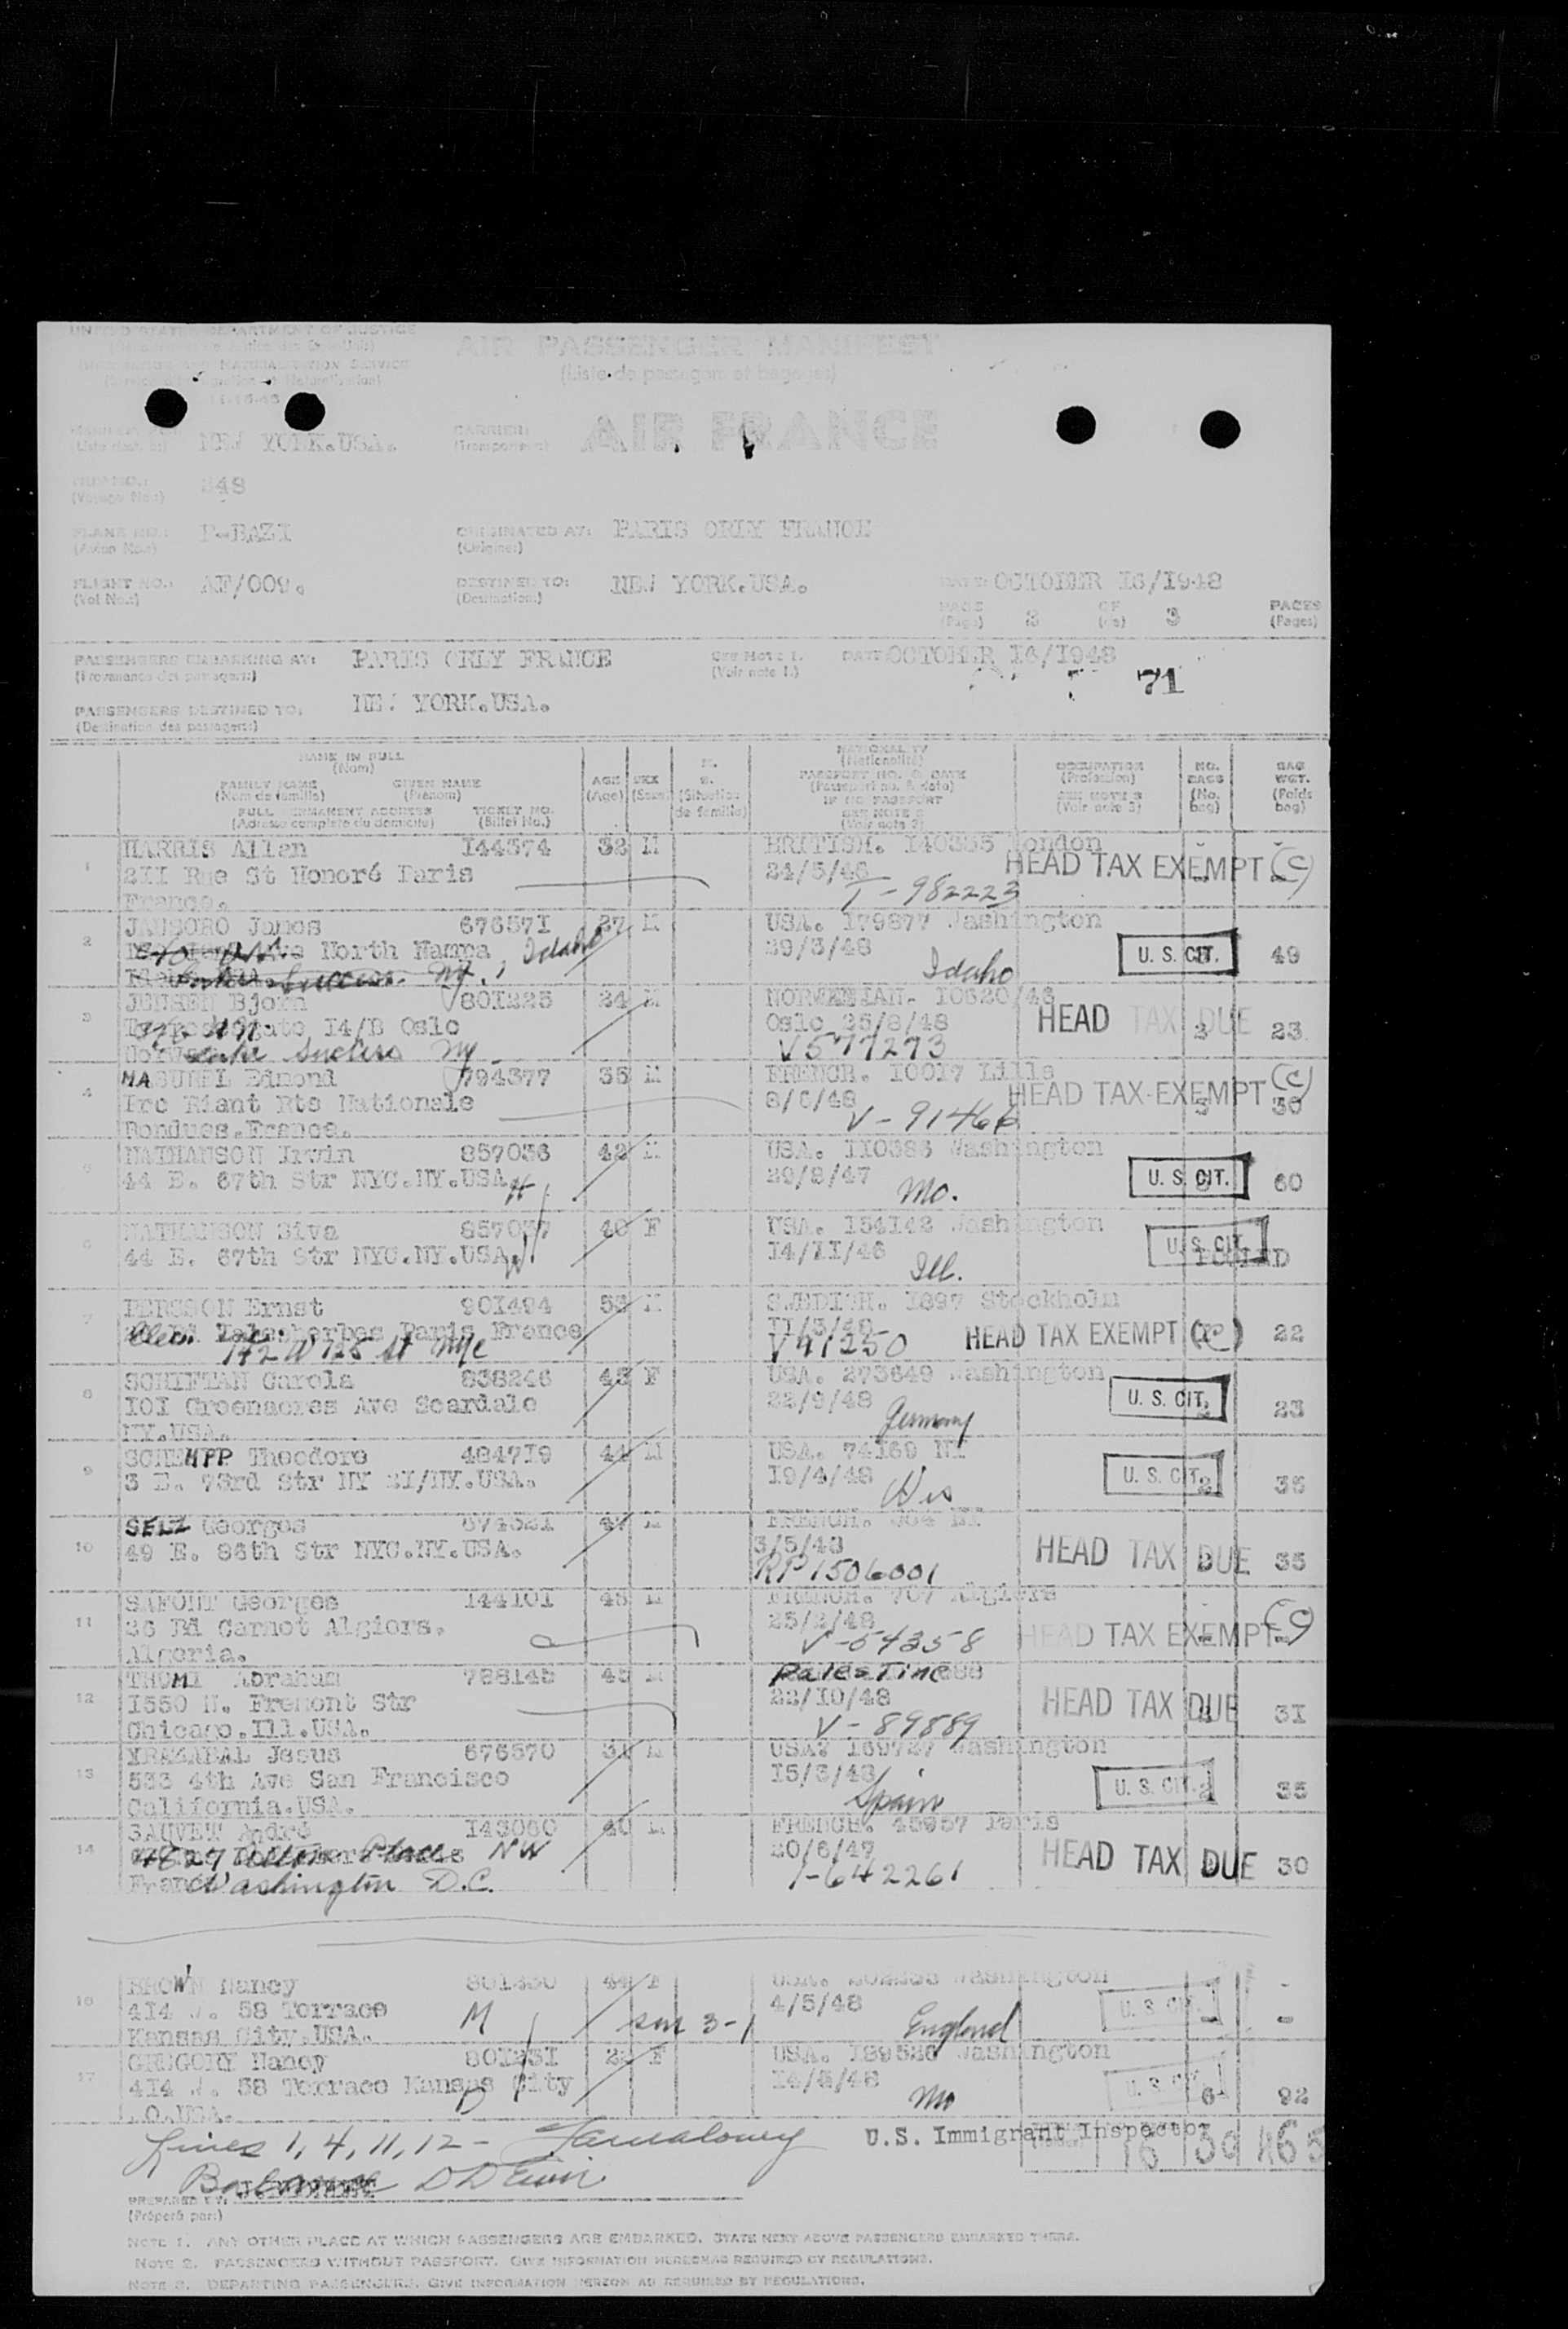 UNITED STATES DEPARTMENT OF JUSTICE
AIR PASSENGER MANIFEST
(Liste de passagers et bagages)
NATURALIZATION SERVICE
NEW YORK.USA.
CARRIER:
(Transporteur)
AIR FRANCE
348
(Voyage No.:)
PLANE NO.:
(Avion No.:)
F-BAZI
ORIGINATED AT:
(Origine:)
PARIS ORLY FRANCE
FLIGHT NO.:
(Vol No.:)
AF/009.
DESTINED TO:
(Destination:)
NEW YORK.USA.
DATE: OCTOBER 16/1948
PAGE
(Page)
2
OF
(de)
3
PAGES
(Pages)
PASSENGERS EMBARKING AT:
(Provenance des passagers:)
PARIS ORLY FRANCE
See Note 1.
(Voir note 1.)
DATE: OCTOBER 16/1948
71
PASSENGERS DESTINED TO:
(Destination des passagers:)
NEW YORK.USA.
NAME IN FULL
(Nom)
FAMILY NAME GIVEN NAME
(Nom de famille) (Prénom)
FULL PERMANENT ADDRESS TICKET NO.
(Adresse complete du domicile) (Billet No.)
AGE
(Age)
SEX
(Sexe)
M.
S.
(Situation
de famille)
NATIONALITY
(Nationalité)
PASSPORT NO. & DATE
(Passeport no. & date)
IF NO PASSPORT
SEE NOTE 2
(Voir note 2)
OCCUPATION
(Profession)
SEE NOTE 3
(Voir note 3)
NO.
BAGS
(No.
bag)
BAG
WGT.
(Poids
bag)
1 HARRIS Allan 144374 32 M BRITISH. 140335 London
211 Rue St Honoré Paris 24/5/46 HEAD TAX EXEMPT (C)
France. T-982223
2 JAUSORO James 676571 27 M USA. 179877 Washington
Ave North Nampa Idaho 29/3/48 U. S. CIT. 49
Success. NY. Idaho
3 JENSEN Bjorn 801225 24 M NORWEGIAN. 10620/46
14/B Oslo Oslo 25/8/48 HEAD TAX DUE 2 23
Lake Success NY V577273
4 MASUREL Edmond 794377 35 M FRENCH. 10017 Lille
Irc Riant Rte Nationale 8/6/48 HEAD TAX EXEMPT (C) 30
Bondues.France. V-91466
5 NATHANSON Irwin 857036 42 M USA. 110386 Washington
44 E. 67th Str NYC.NY.USA. H 29/8/47 U. S. CIT. 60
Mo.
6 NATHANSON Siva 857037 40 F USA. 154142 Washington
44 E. 67th Str NYC.NY.USA. W 14/11/46 U. S. CIT. POOLED
Ill.
7 PERSSON Ernst 901494 53 M SWEDISH. 1897 Stockholm
Bd Malesherbes Paris France 11/3/48 HEAD TAX EXEMPT (C) 22
142 W 125 St NYC V41250
8 SCHIFTAN Carola 838246 43 F USA. 273649 Washington
101 Greenacres Ave Scardale 22/9/48 U. S. CIT. 23
NY.USA. Germany
9 SCHEMPP Theodore 484719 44 M USA. 74169 NY
3 E. 73rd Str NY 21/NY.USA. 19/4/48 U. S. CIT. 2 36
Wis
10 SELZ Georges 674321 47 M FRENCH. 364 NY
49 E. 86th Str NYC.NY.USA. 3/5/48 HEAD TAX DUE 35
RP1506001
11 SAFONT Georges 144101 45 M FRENCH. 707 Algiers
26 Bd Carnot Algiers. 25/2/48 HEAD TAX EXEMPT (C)
Algeria. V-54358
12 THOMI Abraham 788145 45 M Palestine
1550 N. Fremont Str 22/10/48 HEAD TAX DUE 31
Chicago.Ill.USA. V-89889
13 YRAZABAL Jesus 676570 31 M USA. 169727 Washington
533 4th Ave San Francisco 15/3/48 U. S. CIT. 2 35
California.USA. Spain
14 SAUVET André 143060 40 M FRENCH. 45957 Paris
4827 Place NW 20/6/47 HEAD TAX DUE 30
France Washington D.C. 1-642261
16 BROWN Nancy 801230 44 F USA. 202333 Washington
414 W. 58 Terrace M 4/5/48 U. S. CIT. -
Kansas City.USA. England
17 GREGORY Nancy 801231 22 F USA. 189526 Washington
414 W. 58 Terrace Kansas City D 14/4/48 U. S. CIT. 6 92
.O.USA. Mo
Lines 1, 4, 11, 12 - U.S. Immigrant Inspector
Balance
PREPARED BY:
(Préparé par:)
NOTE 1. ANY OTHER PLACE AT WHICH PASSENGERS ARE EMBARKED. STATE NEXT ABOVE PASSENGERS EMBARKED THERE.
NOTE 2. PASSENGERS WITHOUT PASSPORT. GIVE INFORMATION HEREON AS REQUIRED BY REGULATIONS.
NOTE 3. DEPARTING PASSENGERS. GIVE INFORMATION HEREON AS REQUIRED BY REGULATIONS.